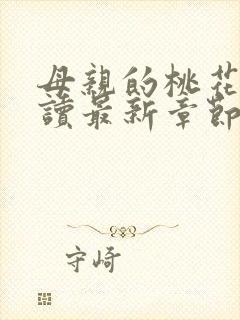 母親的桃花
讀最新章節
守崎